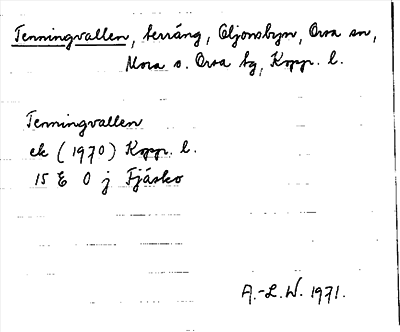 Tenningvallen, terräng, Oljonsbyn, Orsa sn,
Mora o. Orsa tg, Kopp. l.
Tenningvallen
ek (1970) Kopp. l.
15 E 0 j Fjäsko
A.-L.W. 1971.